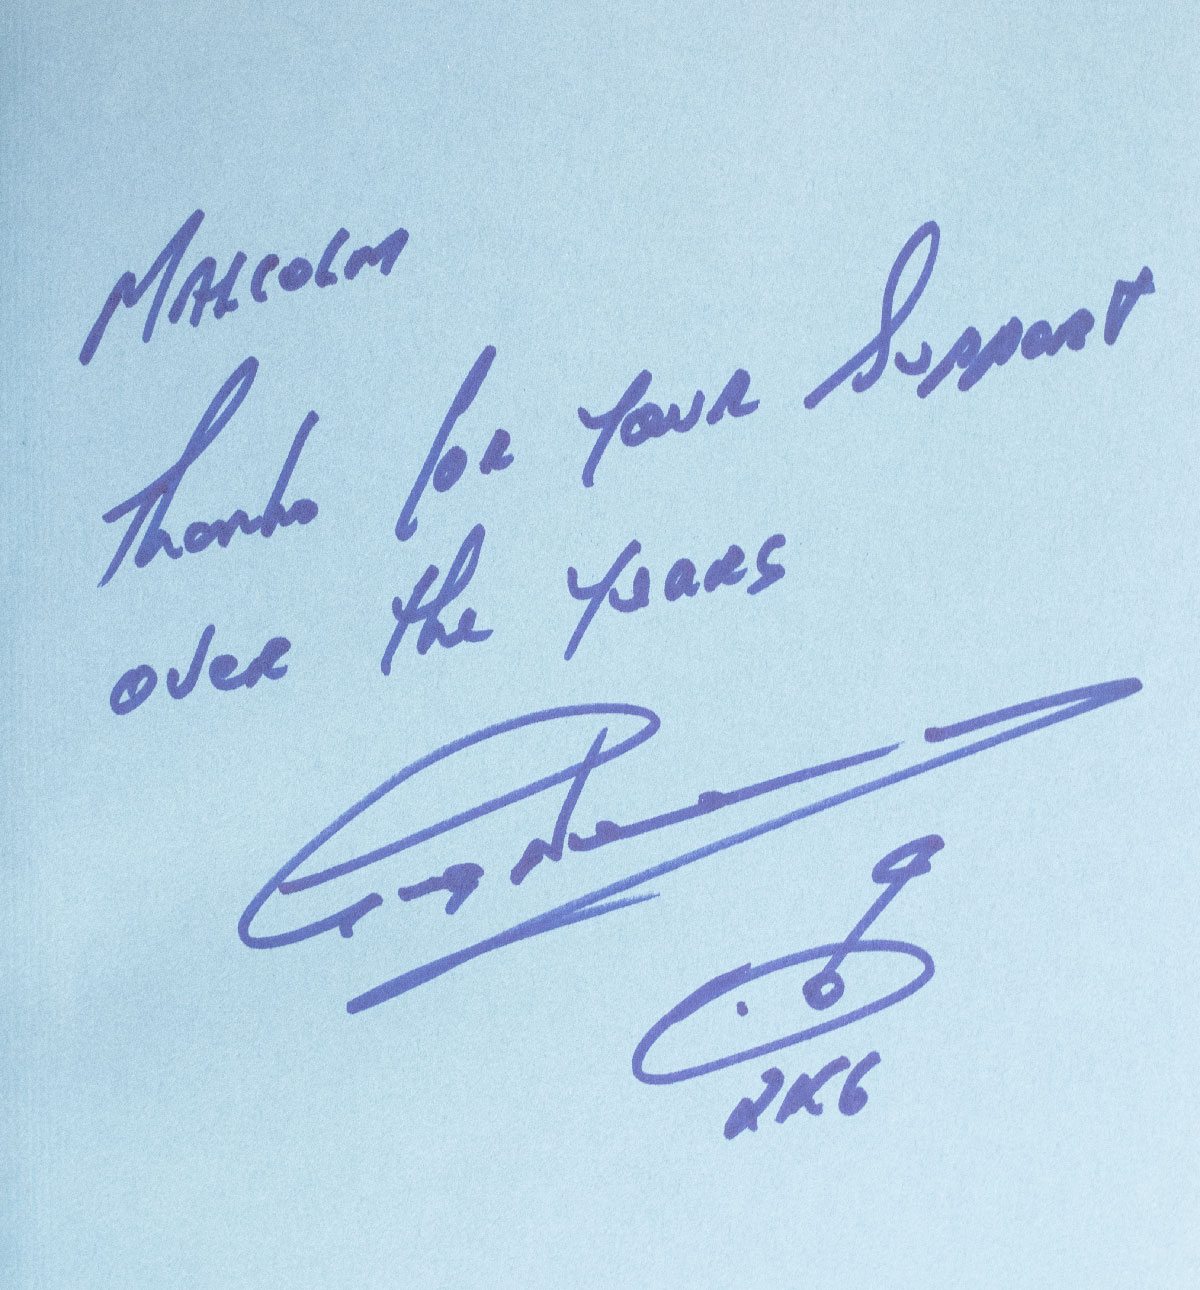 MALCOLM
Thanks for your Support
over the years